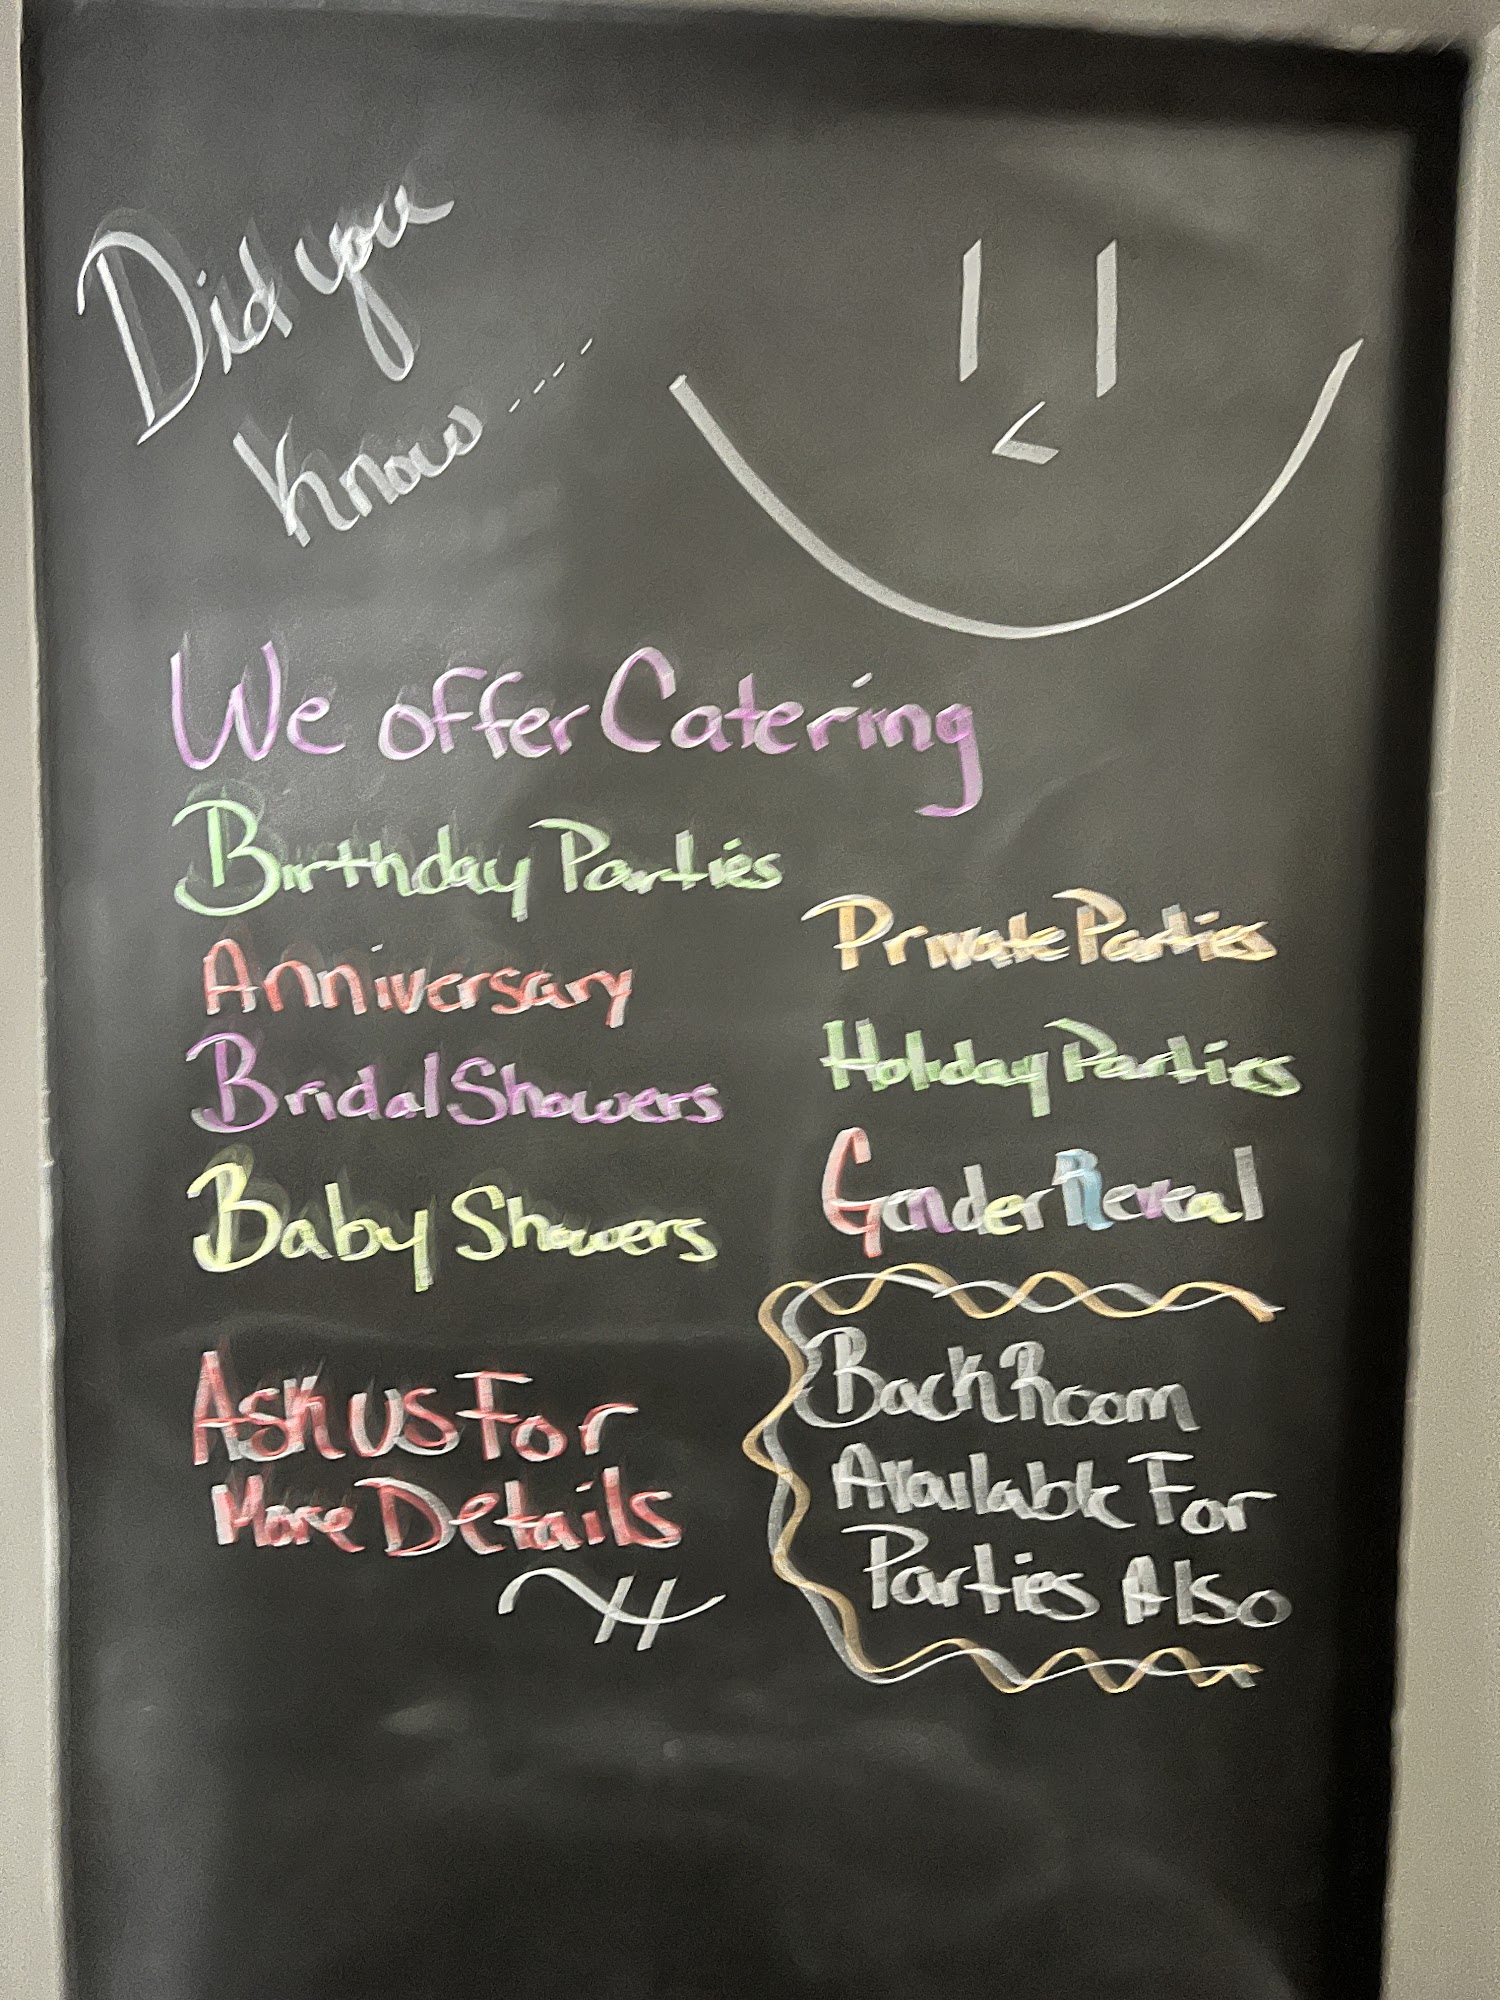 Did you
Know....
We offer Catering
Birthday Parties
Anniversary
Bridal Showers
Baby Showers
Private Parties
Holiday Parties
Gender Reveal
Ask us For
More Details
Back Room
Available For
Parties Also